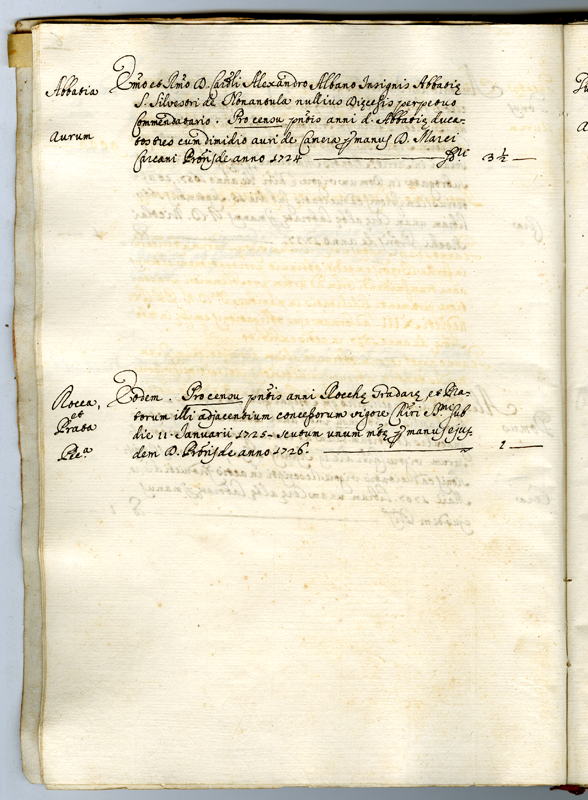 Abbatia
Aurum
Emo et Rmo D. Cardli Alexandro Albano Insignis Abbatię
S. Silvestri de Nonantula nullius Dięcesis perpetuo
Commendatario. Pro censu pñtis anni d. Abbatię duca-
tos tres cum dimidio auri de Camera p manus D. Marci
Carcani Pñris de anno 1724 3 ½ —
Rocca,
et
Prata
Eodem. Pro censu pñtis anni Rocchę Gradarę, et Pra-
torum illi adjacentium concessorum vigore Chiri Smi sub
die 11. Januarii 1725 - scutum unum mtę p manus ejus-
dem D. Pñris de anno 1726. 1 —